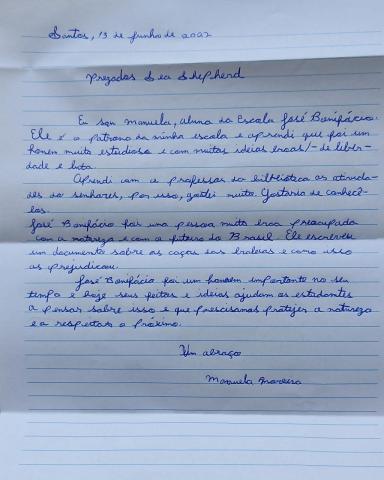 Santos, 13 de Junho de 2022
Prezados Sea Shepherd
Eu sou manuela, aluna da Escola José Bonifácio.
Ele é o patrono da minha escola e aprendi que foi um
homem muito estudioso e com muitas ideias boas/- de liber-
dade e luta.
Aprendi com a professora da biblioteca as ativida-
des do senhores, por isso, gostei muito. Gostaria de conhecê-
los.
José Bonifácio foi uma pessoa muito boa preocupada
com a natureza e com o futuro do Brasil. Ele escreveu
um documento sobre as caças das baleias e como isso
as prejudicou.
José Bonifácio foi um homem importante no seu
tempo e hoje seus feitos e ideias ajudam os estudantes
a pensar sobre isso e que precisamos proteger a natureza
e a respeitar o próximo.
Um abraço
Manuela